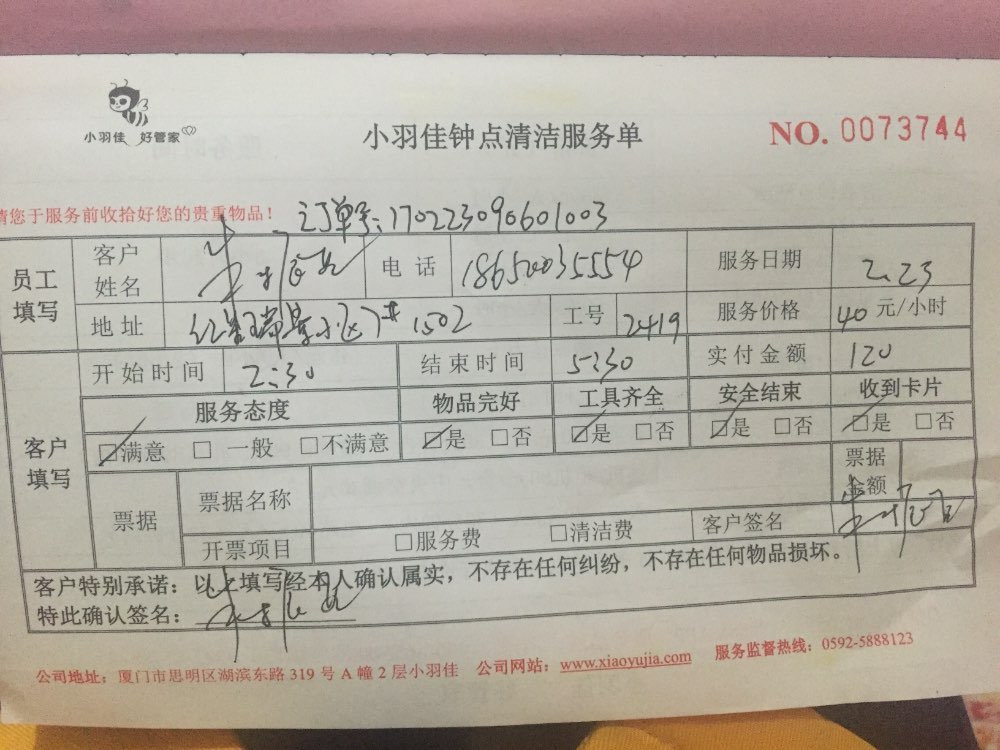 小羽佳 好管家
小羽佳钟点清洁服务单
NO. 0073744
请您于服务前收拾好您的贵重物品！ 订单号：170223090601003
员工填写 客户姓名 电话 18650035554 服务日期 2.23
地址 1502 工号 2419 服务价格 40 元/小时
客户填写 开始时间 2:30 结束时间 5:30 实付金额 120
服务态度 物品完好 工具齐全 安全结束 收到卡片
☑满意 □ 一般 □不满意 ☑是 □否 ☑是 □否 ☑是 □否 ☑是 □否
票据 票据名称 票据金额
开票项目 □服务费 □清洁费 客户签名
客户特别承诺：以上填写经本人确认属实，不存在任何纠纷，不存在任何物品损坏。
特此确认签名：
公司地址：厦门市思明区湖滨东路 319 号 A 幢 2 层小羽佳 公司网站：www.xiaoyujia.com 服务监督热线：0592-5888123